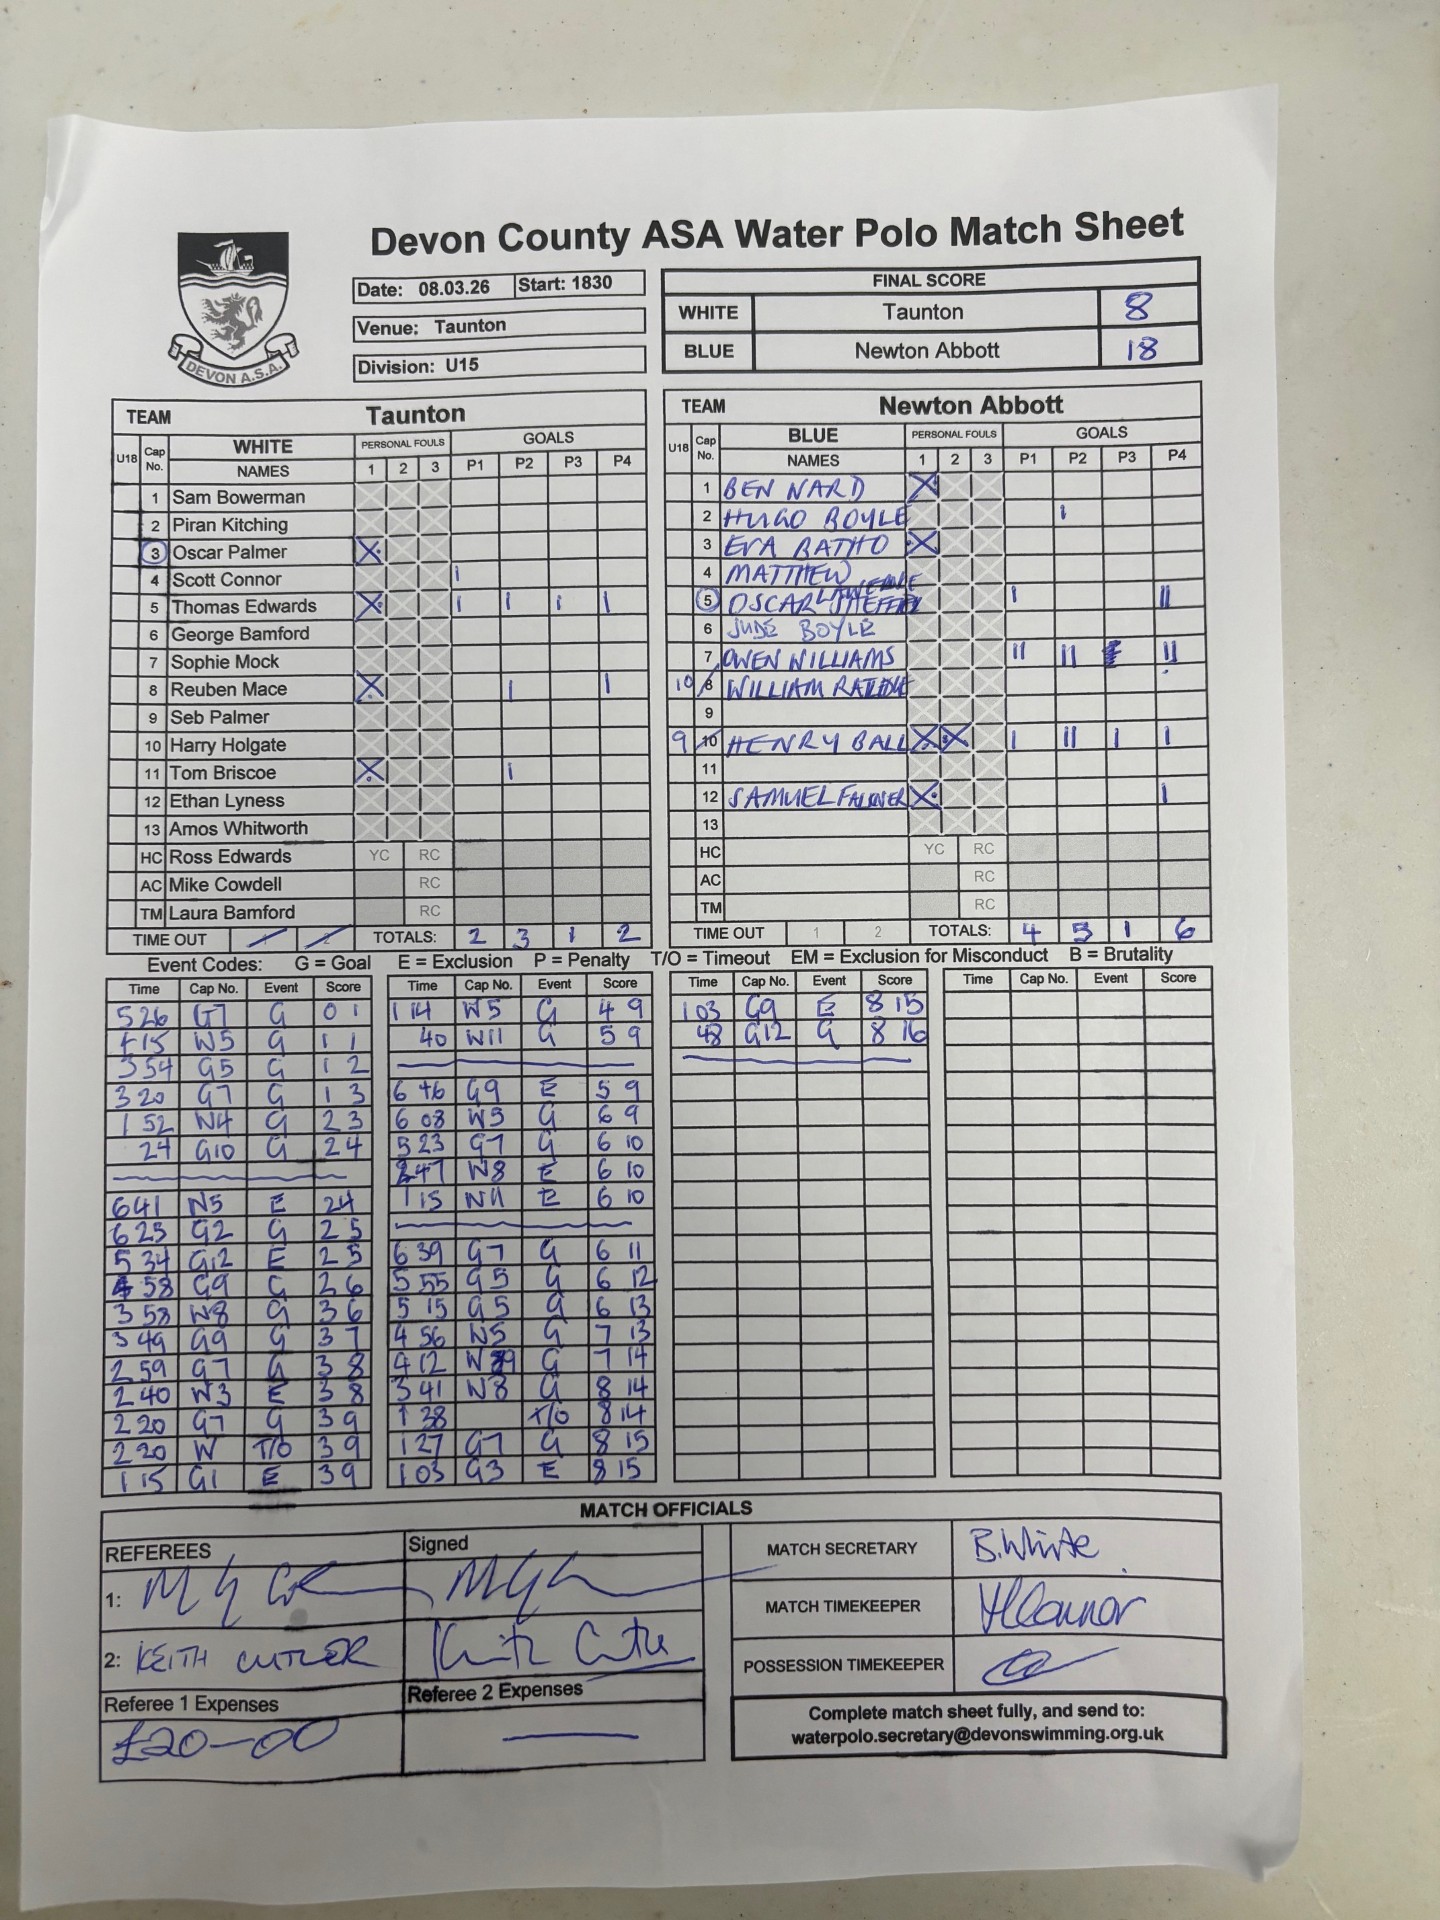 Devon County ASA Water Polo Match Sheet
DEVON A.S.A.
Date: 08.03.26 Start: 1830
Venue: Taunton
Division: U15
FINAL SCORE
WHITE Taunton 8
BLUE Newton Abbott 18
TEAM Taunton
U18 Cap No. WHITE NAMES PERSONAL FOULS 1 2 3 GOALS P1 P2 P3 P4
1 Sam Bowerman
2 Piran Kitching
3 Oscar Palmer X
4 Scott Connor I
5 Thomas Edwards X I I I I
6 George Bamford
7 Sophie Mock
8 Reuben Mace X I I
9 Seb Palmer
10 Harry Holgate
11 Tom Briscoe X I
12 Ethan Lyness
13 Amos Whitworth
HC Ross Edwards YC RC
AC Mike Cowdell RC
TM Laura Bamford RC
TIME OUT 1 2 TOTALS: 2 3 1 2
TEAM Newton Abbott
U18 Cap No. BLUE NAMES PERSONAL FOULS 1 2 3 GOALS P1 P2 P3 P4
1 BEN NARD X
2 HUGO BOYLE I
3 EVA BATHO X
4 MATTHEW
5 OSCAR I II
6 JUDE BOYLE
7 OWEN WILLIAMS II II II
10 8 WILLIAM
9
9 10 HENRY BALL X X I II I I
11
12 SAMUEL X I
13
HC YC RC
AC RC
TM RC
TIME OUT 1 2 TOTALS: 4 5 1 6
Event Codes: G = Goal E = Exclusion P = Penalty T/O = Timeout EM = Exclusion for Misconduct B = Brutality
Time Cap No. Event Score
5 26 G7 G 0 1
4 15 W5 G 1 1
3 54 G5 G 1 2
3 20 G7 G 1 3
1 52 W4 G 2 3
24 G10 G 2 4
6 41 W5 E 2 4
6 25 G2 G 2 5
5 34 G12 E 2 5
4 58 G9 G 2 6
3 58 W8 G 3 6
3 49 G9 G 3 7
2 59 G7 G 3 8
2 40 W3 E 3 8
2 20 G7 G 3 9
2 20 W T/O 3 9
1 15 G1 E 3 9
Time Cap No. Event Score
1 14 W5 G 4 9
40 W11 G 5 9
6 46 G9 E 5 9
6 08 W5 G 6 9
5 23 G7 G 6 10
2 47 W8 E 6 10
1 15 W11 E 6 10
6 39 G7 G 6 11
5 55 G5 G 6 12
5 15 G5 G 6 13
4 56 W5 G 7 13
4 12 W 9 G 7 14
3 41 W8 G 8 14
1 38 T/O 8 14
1 27 G7 G 8 15
1 03 G3 E 8 15
Time Cap No. Event Score
1 03 G9 E 8 15
48 G12 G 8 16
Time Cap No. Event Score
MATCH OFFICIALS
REFEREES Signed
1:
2: KEITH CUTLER
Referee 1 Expenses Referee 2 Expenses
£20-00
MATCH SECRETARY B.White
MATCH TIMEKEEPER
POSSESSION TIMEKEEPER
Complete match sheet fully, and send to:
waterpolo.secretary@devonswimming.org.uk